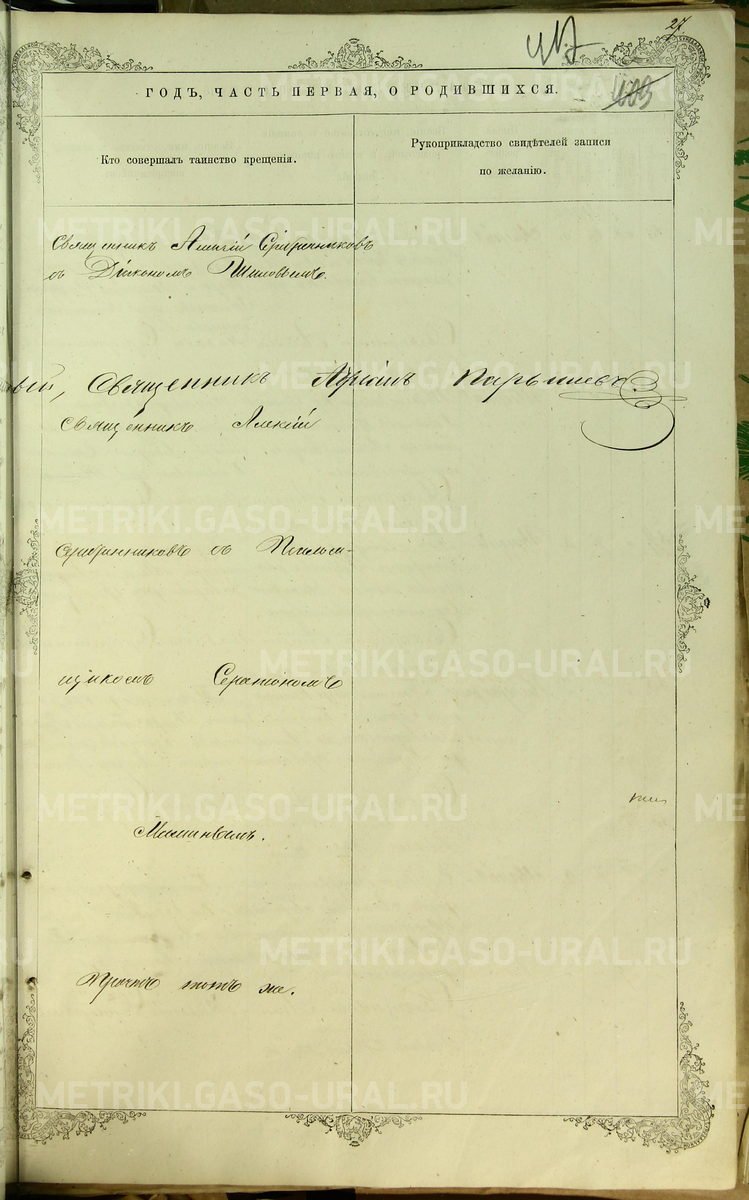 27
417
ГОДЪ, ЧАСТЬ ПЕРВАЯ, О РОДИВШИХСЯ.
Кто совершалъ таинство крещенія.
Рукоприкладство свидѣтелей записи
по желанію.
Священникъ Алексій Серебренниковъ
съ Діакономъ Шиловымъ.
Священникъ
Священникъ Алексій
Серебренниковъ съ Псаломщикомъ
Серапіономъ
Маминымъ.
Причтъ тотъ же.
METRIKI.GASO-URAL.RU